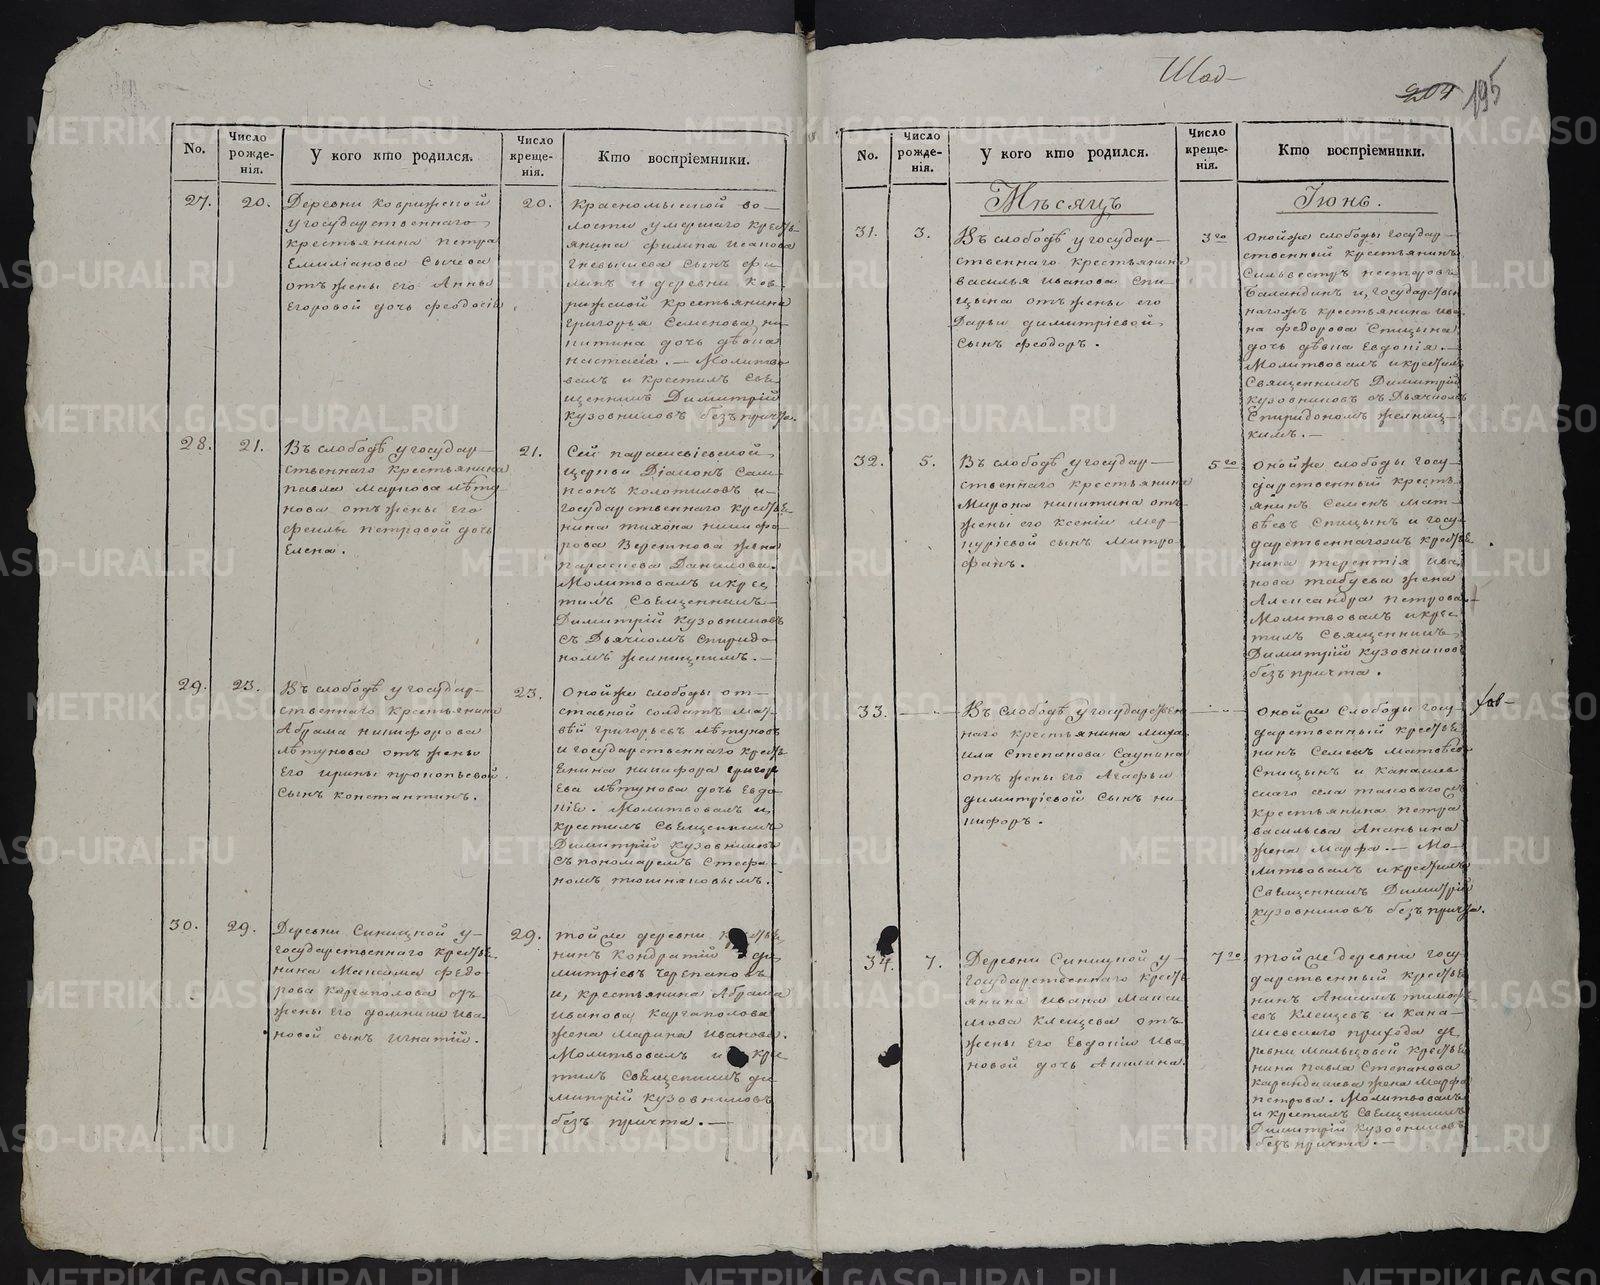 Шад-
204 195
No.
Число рожде-нія.
У кого кто родился.
Число креще-нія.
Кто воспріемники.
27.
20.
Деревни Коврижской
у государственнаго
крестьянина Петра
Емиліанова Сычева
отъ жены его Анны
Егоровой дочь Феодосія
20.
Красномысской во-
лости умершаго кресть-
янина Филипа Иванова
Гневышева сынъ Фи-
липъ и деревни Ков-
рижской крестьянина
Григорья Семенова Ни-
китина дочь дѣвка
Настасіа. — Молитво
валъ и крестилъ Свя-
щенникъ Димитрій
Кузовниковъ безъ причта.
28.
21.
Въ слободѣ у государ-
ственнаго крестьянина
Павла Маркова Лѣту
нова отъ жены его
Феклы Петровой дочь
Елена.
21.
Сей Параскевіевской
церкви Діаконъ Сам-
псонъ Колотиловъ и
государственнаго кресть-
нина Тихона Никифо-
рова Веретнова жена
Параскева Данилова.
Молитвовалъ и крес
тилъ Священникъ
Димитрій Кузовниковъ
съ Дьячкомъ Спиридо
номъ Желницкимъ. —
29.
23.
Въ слободѣ у государ-
ственнаго крестьянина
Абрама Никифорова
Лѣтунова отъ жены
его Ирины Прокопьевой
сынъ Константинъ.
23.
Оной же слободы от-
ставной солдатъ Мат-
вѣй Григорьевъ Лѣтуновъ
и государственнаго кресть
янина Никифора Григор
ева Лѣтунова дочь Евдо
кіа. Молитвовалъ и
крестилъ Священникъ
Димитрій Кузовниковъ
съ пономаремъ Стефа-
номъ Тюшняковымъ.
30.
29.
Деревни Синицкой у
государственнаго кресть
нина Максима Федо
рова Каргаполова отъ
жены его Домники Ива
новой сынъ Игнатій.
29.
Той же деревни кресть
нинъ Кондратій Ди
митріевъ Черепановъ
и, крестьянина Абрама
Иванова Каргаполова
жена Марина Иванова.
Молитвовалъ и кре
тилъ Священникъ Ди
митрій Кузовниковъ
безъ причта. —
No.
Число рожде-нія.
У кого кто родился.
Число креще-нія.
Кто воспріемники.
Мѣсяцъ Іюнь.
31.
3.
Въ слободѣ у государ-
ственнаго крестьянина
Василья Иванова Спи
цына отъ жены его
Дарьи Димитріевой
сынъ Феодоръ.
3го
Оной же слободы государ-
ственный крестьянинъ
Сильвестръ Несторовъ
Баландинъ и, государствен
нагожъ крестьянина Ива
на Федорова Спицына
дочь дѣвка Евдокія. —
Молитвовалъ и крестилъ
Священникъ Димитрій
Кузовниковъ съ Дьячкомъ
Спиридономъ Желниц-
кимъ. —
32.
5.
Въ слободѣ у государ-
ственнаго крестьянина
Мирона Никитина отъ
жены его Ксеніи Мер-
куріевой сынъ Митро
фанъ.
5го
Оной же слободы госу-
дарственный кресть-
янинъ Семенъ Мат-
вѣевъ Спицынъ и госу-
дарственнагожъ кресть
нина Терентія Ива
нова Табуева жена
Александра Петрова
Молитвовалъ и крес-
тилъ Священникъ
Димитрій Кузовниковъ
безъ причта.
33.
— „ —
Въ слободѣ у государствен
наго крестьянина Миха
ила Степанова Саунина
отъ жены его Агафьи
Димитріевой сынъ Ни
кифоръ.
— „ —
Оной же слободы госу-
дарственный кресть
нинъ Семенъ Матвѣевъ
Спицынъ и Канашев
скаго села таковаго жъ
крестьянина Петра
Васильева Ананьина
жена Марфа. — Мо-
литвовалъ и крестилъ
Священникъ Димитрій
Кузовниковъ безъ причта.
34.
7.
Деревни Синицкой у
государственнаго кресть
янина Ивана Макси
мова Клещева отъ
жены его Евдокіи Ива
новой дочь Акилина.
7го
Той же деревни госу-
дарственный кресть
нинъ Анисимъ Тимоф
евъ Клещевъ и Кана-
шевскаго прихода де
ревни Мальцовой кресть
нина Павла Степанова
Карандашева жена Марфа
Петрова. Молитвовалъ
и крестилъ Священникъ
Димитрій Кузовниковъ
безъ причта. —
METRIKI.GASO-URAL.RU